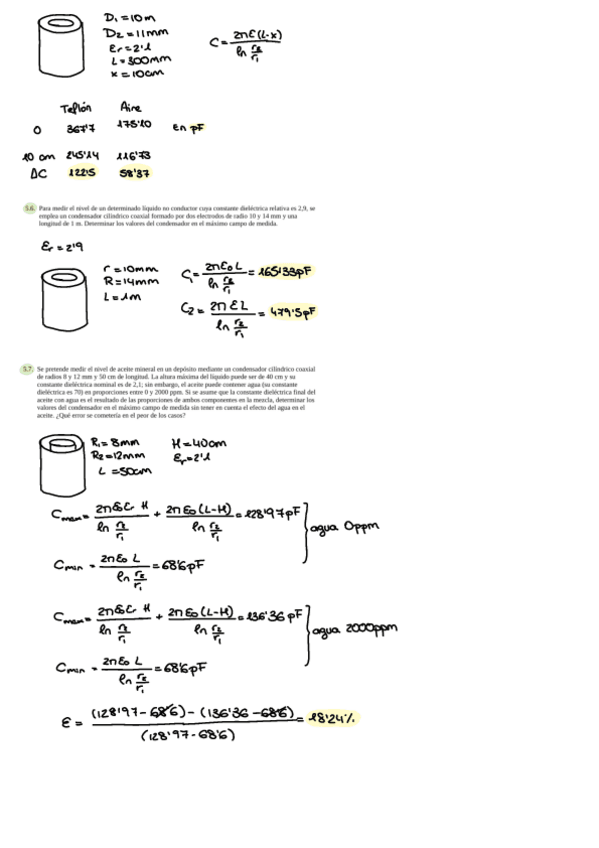 D₁=10m
D₂=11mm
Er=2'1
L=300mm
x=10cm
C= 2πE(L-x) / ln r₂/r₁
Teflón Aire
0 367'7 175'10 en pF
10 cm 245'14 116'73
ΔC 122'5 58'37
5.6. Para medir el nivel de un determinado líquido no conductor cuya constante dieléctrica relativa es 2,9, se
emplea un condensador cilíndrico coaxial formado por dos electrodos de radio 10 y 14 mm y una
longitud de 1 m. Determinar los valores del condensador en el máximo campo de medida.
Er=2'9
r=10mm
R=14mm
L=1m
C₁= 2πE₀L / ln r₂/r₁ = 165'33pF
C₂= 2πEL / ln r₂/r₁ = 479'5pF
5.7. Se pretende medir el nivel de aceite mineral en un depósito mediante un condensador cilíndrico coaxial
de radios 8 y 12 mm y 50 cm de longitud. La altura máxima del líquido puede ser de 40 cm y su
constante dieléctrica nominal es de 2,1; sin embargo, el aceite puede contener agua (su constante
dieléctrica es 70) en proporciones entre 0 y 2000 ppm. Si se asume que la constante dieléctrica final del
aceite con agua es el resultado de las proporciones de ambos componentes en la mezcla, determinar los
valores del condensador en el máximo campo de medida sin tener en cuenta el efecto del agua en el
aceite. ¿Qué error se cometería en el peor de los casos?
R₁=8mm
R₂=12mm
L=50cm
H=40cm
Er=2'1
Cmax= 2πE₀Er H / ln r₂/r₁ + 2πE₀(L-H) / ln r₂/r₁ =128'97pF
agua 0ppm
Cmin= 2πE₀ L / ln r₂/r₁ =68'6pF
Cmax= 2πE₀Er H / ln r₂/r₁ + 2πE₀(L-H) / ln r₂/r₁ =136'36pF
agua 2000ppm
Cmin= 2πE₀ L / ln r₂/r₁ =68'6pF
E= (128'97-68'6)-(136'36-68'6) / (128'97-68'6) =18'24%